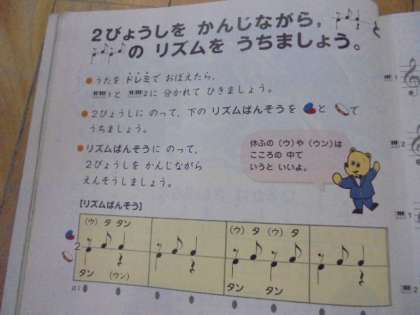 2びょうしを かんじながら,
の リズムを うちましょう。
● うたを ドレミで おぼえたら、
1と 2に 分かれて ひきましょう。
● 2びょうしに のって、下の リズムばんそうを と て
うちましょう。
● リズムばんそうに のって、
2びょうしを かんじながら
えんそうしましょう。
休ふの(ウ)や(ウン)は
こころの 中で
いうと いいよ。
[リズムばんそう]
(ウ) タ タン
(ウ) タ (ウ) タ
2
タン (ウン)
タン タン